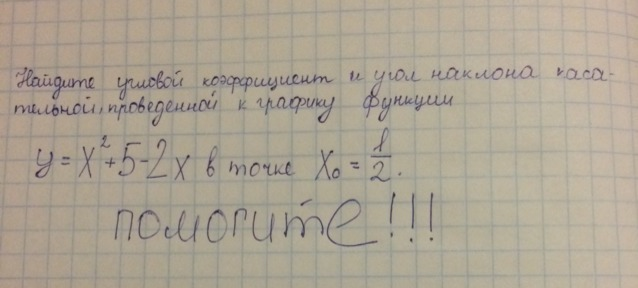 Найдите угловой коэффициент и угол наклона каса-
тельной, проведенной к графику функции
y = x² + 5 - 2x в точке x₀ = 1/2.
помогите!!!